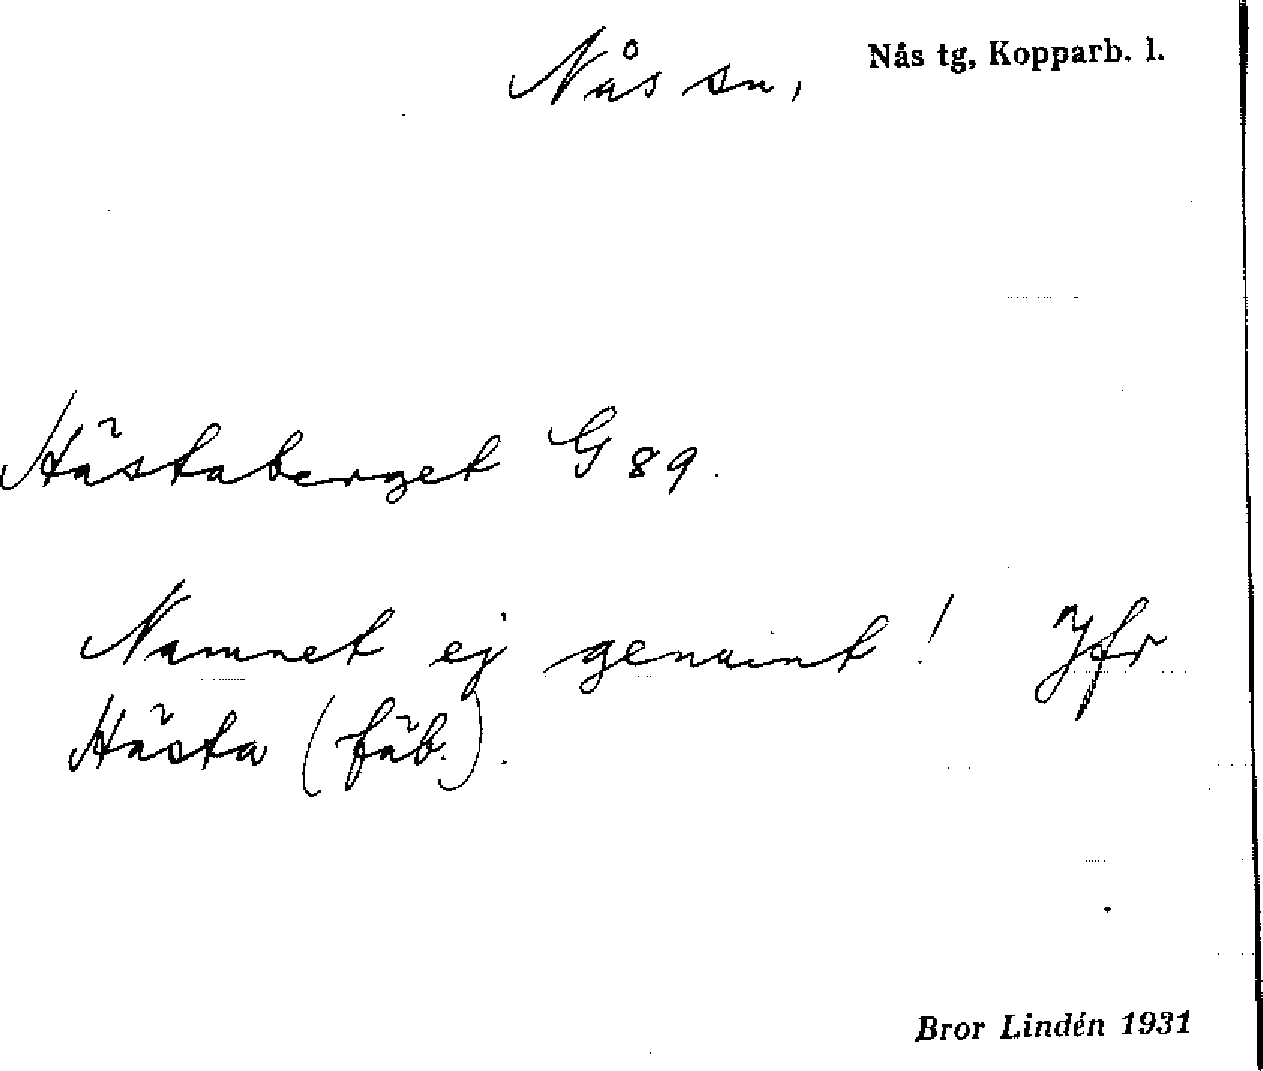 Nås sn, Nås tg, Kopparb. l.
Hästaberget G 89.
Namnet ej genuint! Jfr
Hästa (fäb.).
Bror Lindén 1931